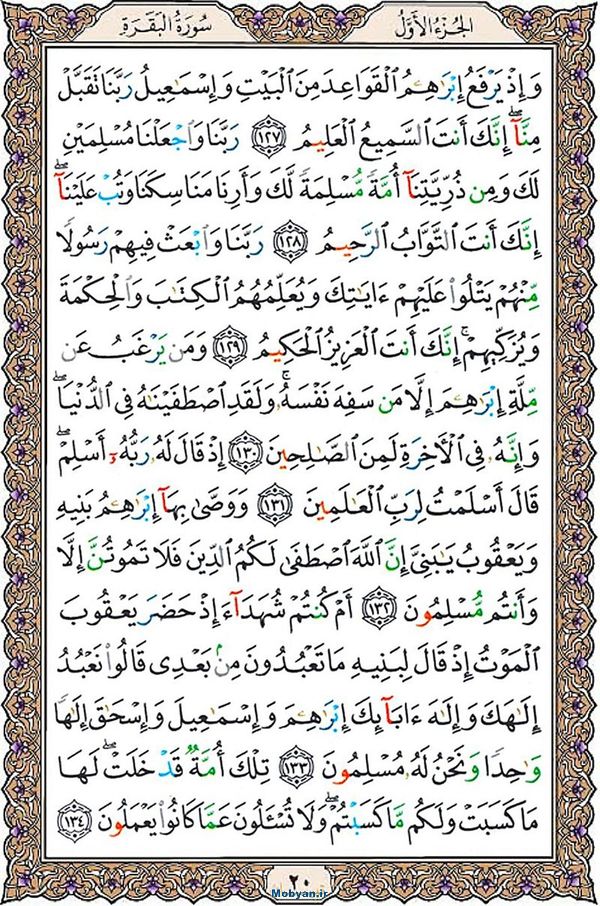 الجُزْءُ الأَوَّلُ
سُورَةُ البَقَرَةِ
وَإِذْ يَرْفَعُ إِبْرَٰهِـۧمُ ٱلْقَوَاعِدَ مِنَ ٱلْبَيْتِ وَإِسْمَـٰعِيلُ رَبَّنَا تَقَبَّلْ
مِنَّآ ۖ إِنَّكَ أَنتَ ٱلسَّمِيعُ ٱلْعَلِيمُ ١٢٧ رَبَّنَا وَٱجْعَلْنَا مُسْلِمَيْنِ
لَكَ وَمِن ذُرِّيَّتِنَآ أُمَّةً مُّسْلِمَةً لَّكَ وَأَرِنَا مَنَاسِكَنَا وَتُبْ عَلَيْنَآ ۖ
إِنَّكَ أَنتَ ٱلتَّوَّابُ ٱلرَّحِيمُ ١٢٨ رَبَّنَا وَٱبْعَثْ فِيهِمْ رَسُولًا
مِّنْهُمْ يَتْلُوا۟ عَلَيْهِمْ ءَايَـٰتِكَ وَيُعَلِّمُهُمُ ٱلْكِتَـٰبَ وَٱلْحِكْمَةَ
وَيُزَكِّيهِمْ ۚ إِنَّكَ أَنتَ ٱلْعَزِيزُ ٱلْحَكِيمُ ١٢٩ وَمَن يَرْغَبُ عَن
مِّلَّةِ إِبْرَٰهِـۧمَ إِلَّا مَن سَفِهَ نَفْسَهُۥ ۚ وَلَقَدِ ٱصْطَفَيْنَـٰهُ فِى ٱلدُّنْيَا ۖ
وَإِنَّهُۥ فِى ٱلْـَٔاخِرَةِ لَمِنَ ٱلصَّـٰلِحِينَ ١٣٠ إِذْ قَالَ لَهُۥ رَبُّهُۥٓ أَسْلِمْ ۖ
قَالَ أَسْلَمْتُ لِرَبِّ ٱلْعَـٰلَمِينَ ١٣١ وَوَصَّىٰ بِهَآ إِبْرَٰهِـۧمُ بَنِيهِ
وَيَعْقُوبُ يَـٰبَنِىَّ إِنَّ ٱللَّهَ ٱصْطَفَىٰ لَكُمُ ٱلدِّينَ فَلَا تَمُوتُنَّ إِلَّا
وَأَنتُم مُّسْلِمُونَ ١٣٢ أَمْ كُنتُمْ شُهَدَآءَ إِذْ حَضَرَ يَعْقُوبَ
ٱلْمَوْتُ إِذْ قَالَ لِبَنِيهِ مَا تَعْبُدُونَ مِنۢ بَعْدِى قَالُوا۟ نَعْبُدُ
إِلَـٰهَكَ وَإِلَـٰهَ ءَابَآئِكَ إِبْرَٰهِـۧمَ وَإِسْمَـٰعِيلَ وَإِسْحَـٰقَ إِلَـٰهًا
وَٰحِدًا وَنَحْنُ لَهُۥ مُسْلِمُونَ ١٣٣ تِلْكَ أُمَّةٌ قَدْ خَلَتْ ۖ لَهَا
مَا كَسَبَتْ وَلَكُم مَّا كَسَبْتُمْ ۖ وَلَا تُسْـَٔلُونَ عَمَّا كَانُوا۟ يَعْمَلُونَ ١٣٤
٢٠
Mobyan.ir